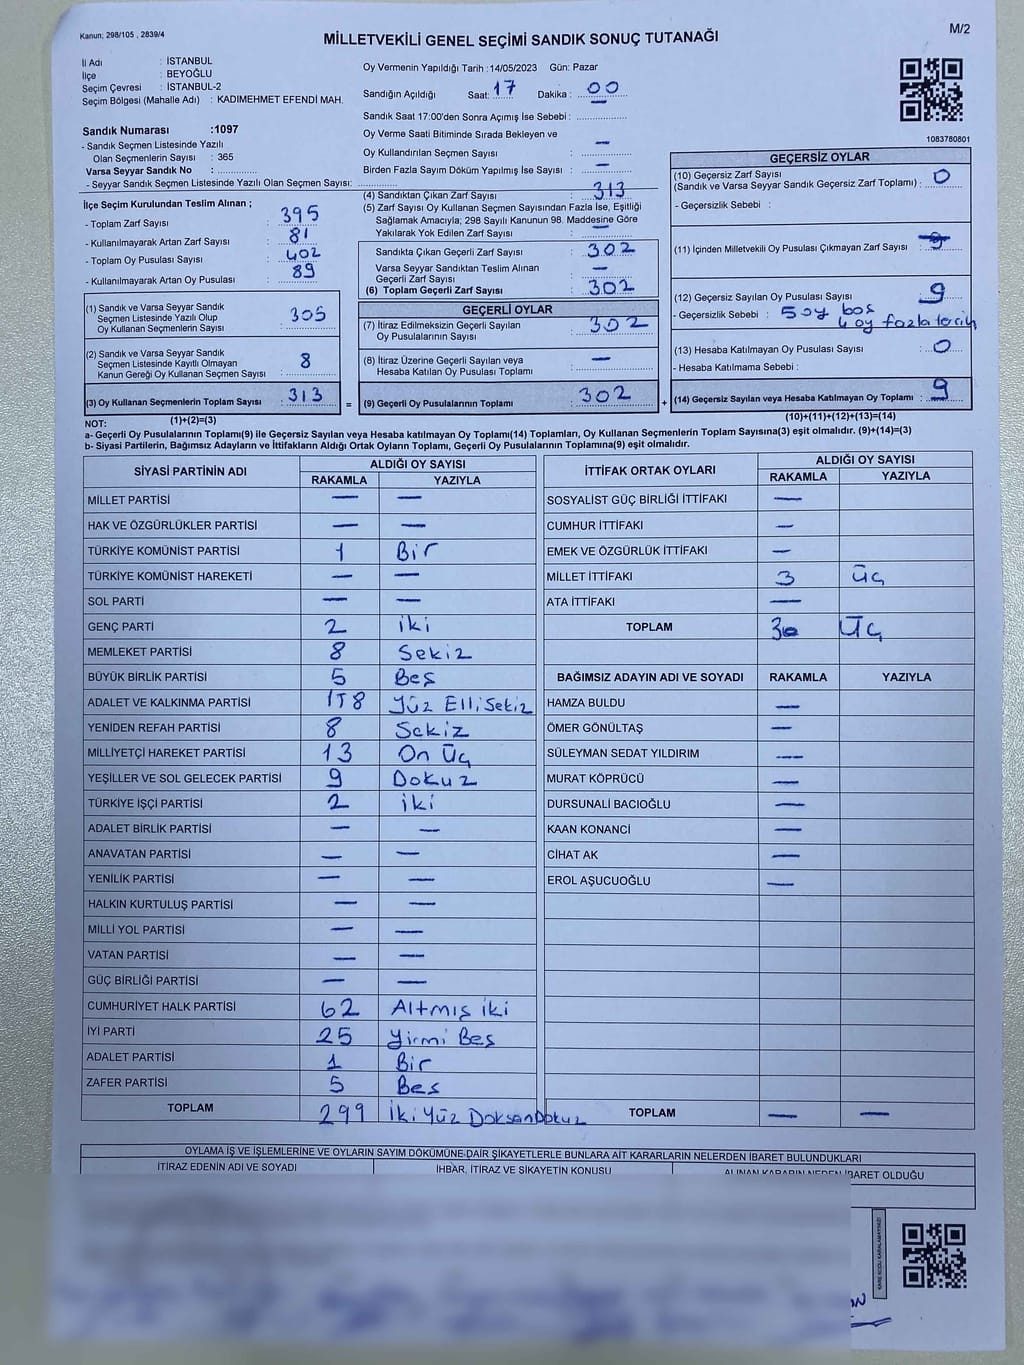 Kanun; 298/105 , 2839/4
M/2
MİLLETVEKİLİ GENEL SEÇİMİ SANDIK SONUÇ TUTANAĞI
İl Adı : İSTANBUL
İlçe : BEYOĞLU
Seçim Çevresi : İSTANBUL-2
Seçim Bölgesi (Mahalle Adı) : KADIMEHMET EFENDİ MAH.
Sandık Numarası :1097
- Sandık Seçmen Listesinde Yazılı
Olan Seçmenlerin Sayısı : 365
Varsa Seyyar Sandık No :
- Seyyar Sandık Seçmen Listesinde Yazılı Olan Seçmen Sayısı:
İlçe Seçim Kurulundan Teslim Alınan ;
- Toplam Zarf Sayısı : 395
- Kullanılmayarak Artan Zarf Sayısı : 81
- Toplam Oy Pusulası Sayısı : 402
- Kullanılmayarak Artan Oy Pusulası : 89
(1) Sandık ve Varsa Seyyar Sandık
Seçmen Listesinde Yazılı Olup
Oy Kullanan Seçmenlerin Sayısı : 305
(2) Sandık ve Varsa Seyyar Sandık
Seçmen Listesinde Kayıtlı Olmayan
Kanun Gereği Oy Kullanan Seçmen Sayısı : 8
(3) Oy Kullanan Seçmenlerin Toplam Sayısı : 313
(1)+(2)=(3)
Oy Vermenin Yapıldığı Tarih : 14/05/2023 Gün: Pazar
Sandığın Açıldığı Saat: 17 Dakika : 00
Sandık Saat 17:00'den Sonra Açımış İse Sebebi :
Oy Verme Saati Bitiminde Sırada Bekleyen ve
Oy Kullandırılan Seçmen Sayısı : —
Birden Fazla Sayım Döküm Yapılmış İse Sayısı : —
(4) Sandıktan Çıkan Zarf Sayısı : 313
(5) Zarf Sayısı Oy Kullanan Seçmen Sayısından Fazla İse, Eşitliği
Sağlamak Amacıyla; 298 Sayılı Kanunun 98. Maddesine Göre
Yakılarak Yok Edilen Zarf Sayısı : —
Sandıkta Çıkan Geçerli Zarf Sayısı : 302
Varsa Seyyar Sandıktan Teslim Alınan
Geçerli Zarf Sayısı : —
(6) Toplam Geçerli Zarf Sayısı : 302
GEÇERLİ OYLAR
(7) İtiraz Edilmeksizin Geçerli Sayılan
Oy Pusulalarının Sayısı : 302
(8) İtiraz Üzerine Geçerli Sayılan veya
Hesaba Katılan Oy Pusulası Toplamı : —
= (9) Geçerli Oy Pusulalarının Toplamı : 302 +
1083780801
GEÇERSİZ OYLAR
(10) Geçersiz Zarf Sayısı
(Sandık ve Varsa Seyyar Sandık Geçersiz Zarf Toplamı) : 0
- Geçersizlik Sebebi :
(11) İçinden Milletvekili Oy Pusulası Çıkmayan Zarf Sayısı :
(12) Geçersiz Sayılan Oy Pusulası Sayısı : 9
- Geçersizlik Sebebi : 5 oy boş
4 oy fazla tercih
(13) Hesaba Katılmayan Oy Pusulası Sayısı : 0
- Hesaba Katılmama Sebebi :
(14) Geçersiz Sayılan veya Hesaba Katılmayan Oy Toplamı : 9
(10)+(11)+(12)+(13)=(14)
NOT:
a- Geçerli Oy Pusulalarının Toplamı(9) ile Geçersiz Sayılan veya Hesaba katılmayan Oy Toplamı(14) Toplamları, Oy Kullanan Seçmenlerin Toplam Sayısına(3) eşit olmalıdır. (9)+(14)=(3)
b- Siyasi Partilerin, Bağımsız Adayların ve İttifakların Aldığı Ortak Oyların Toplamı, Geçerli Oy Pusulalarının Toplamına(9) eşit olmalıdır.
SİYASİ PARTİNİN ADI ALDIĞI OY SAYISI
RAKAMLA YAZIYLA
MİLLET PARTİSİ — —
HAK VE ÖZGÜRLÜKLER PARTİSİ — —
TÜRKİYE KOMÜNİST PARTİSİ 1 Bir
TÜRKİYE KOMÜNİST HAREKETİ — —
SOL PARTİ — —
GENÇ PARTİ 2 iki
MEMLEKET PARTİSİ 8 Sekiz
BÜYÜK BİRLİK PARTİSİ 5 Beş
ADALET VE KALKINMA PARTİSİ 158 Yüz Elli Sekiz
YENİDEN REFAH PARTİSİ 8 Sekiz
MİLLİYETÇİ HAREKET PARTİSİ 13 On Üç
YEŞİLLER VE SOL GELECEK PARTİSİ 9 Dokuz
TÜRKİYE İŞÇİ PARTİSİ 2 iki
ADALET BİRLİK PARTİSİ — —
ANAVATAN PARTİSİ — —
YENİLİK PARTİSİ — —
HALKIN KURTULUŞ PARTİSİ — —
MİLLİ YOL PARTİSİ — —
VATAN PARTİSİ — —
GÜÇ BİRLİĞİ PARTİSİ — —
CUMHURİYET HALK PARTİSİ 62 Altmış iki
İYİ PARTİ 25 Yirmi Beş
ADALET PARTİSİ 1 Bir
ZAFER PARTİSİ 5 Beş
TOPLAM 299 İki Yüz Doksan Dokuz
İTTİFAK ORTAK OYLARI ALDIĞI OY SAYISI
RAKAMLA YAZIYLA
SOSYALİST GÜÇ BİRLİĞİ İTTİFAKI —
CUMHUR İTTİFAKI —
EMEK VE ÖZGÜRLÜK İTTİFAKI —
MİLLET İTTİFAKI 3 üç
ATA İTTİFAKI —
TOPLAM 3 Üç
BAĞIMSIZ ADAYIN ADI VE SOYADI RAKAMLA YAZIYLA
HAMZA BULDU —
ÖMER GÖNÜLTAŞ —
SÜLEYMAN SEDAT YILDIRIM —
MURAT KÖPRÜCÜ —
DURSUNALİ BACIOĞLU —
KAAN KONANCİ —
CİHAT AK —
EROL AŞUCUOĞLU —
TOPLAM — —
OYLAMA İŞ VE İŞLEMLERİNE VE OYLARIN SAYIM DÖKÜMÜNE DAİR ŞİKAYETLERLE BUNLARA AİT KARARLARIN NELERDEN İBARET BULUNDUKLARI
İTİRAZ EDENİN ADI VE SOYADI İHBAR, İTİRAZ VE ŞİKAYETİN KONUSU ALINAN KARARIN NEDEN İBARET OLDUĞU
KARE KODU KARALAMAYINIZ!